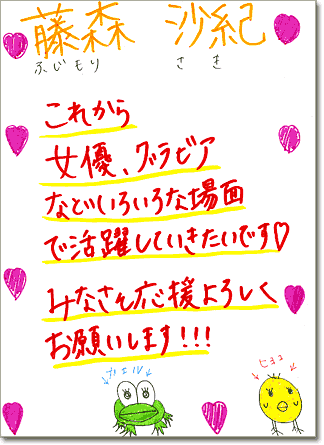 藤森 沙紀
ふじもり さき
これから
女優、グラビア
などいろいろな場面
で活躍していきたいです♡
みなさん応援よろしく
お願いします!!!
カエル
ヒヨコ